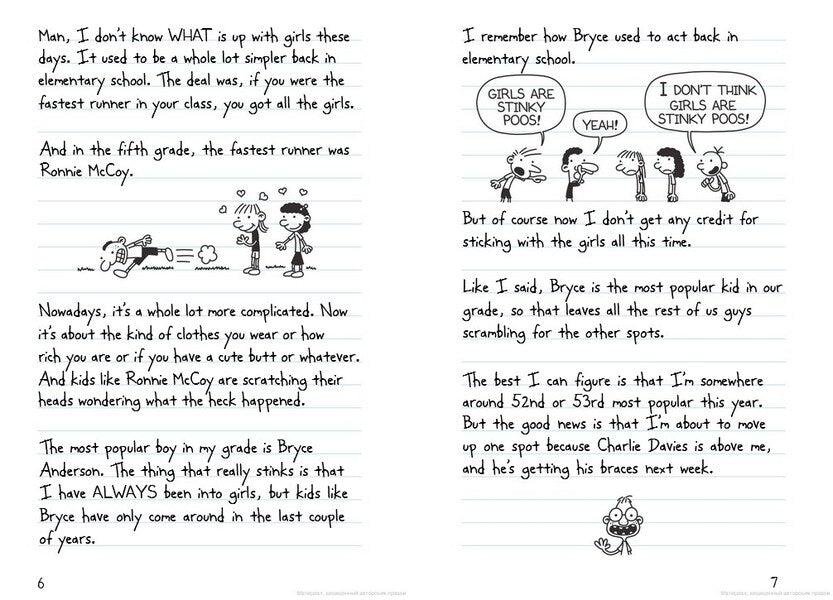 Man, I don't know WHAT is up with girls these
days. It used to be a whole lot simpler back in
elementary school. The deal was, if you were the
fastest runner in your class, you got all the girls.
And in the fifth grade, the fastest runner was
Ronnie McCoy.
Nowadays, it's a whole lot more complicated. Now
it's about the kind of clothes you wear or how
rich you are or if you have a cute butt or whatever.
And kids like Ronnie McCoy are scratching their
heads wondering what the heck happened.
The most popular boy in my grade is Bryce
Anderson. The thing that really stinks is that
I have ALWAYS been into girls, but kids like
Bryce have only come around in the last couple
of years.
6
Материал, защищенный авторским правом
I remember how Bryce used to act back in
elementary school.
GIRLS ARE
STINKY
POOS!
YEAH!
I DON'T THINK
GIRLS ARE
STINKY POOS!
But of course now I don't get any credit for
sticking with the girls all this time.
Like I said, Bryce is the most popular kid in our
grade, so that leaves all the rest of us guys
scrambling for the other spots.
The best I can figure is that I'm somewhere
around 52nd or 53rd most popular this year.
But the good news is that I'm about to move
up one spot because Charlie Davies is above me,
and he's getting his braces next week.
7
Материал, защищенный авторским правом